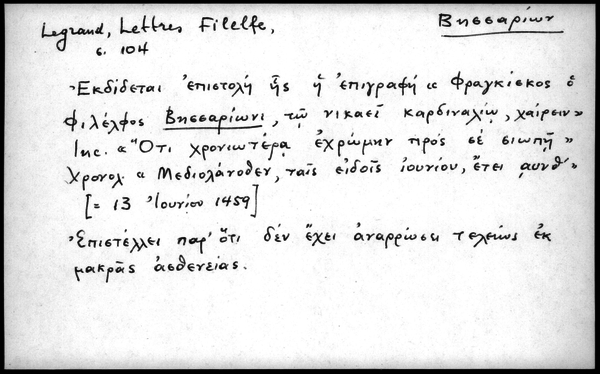 Βησσαρίων
Legrand, Lettres Filelfe,
σ. 104
Ἐκδίδεται ἐπιστολή ἧς ἡ ἐπιγραφή « Φραγκίσκος ὁ
Φιλέλφος Βησσαρίωνι, τῷ νικαεῖ καρδιναλίῳ, χαίρειν»
Inc. « Ὅτι χρονιωτέρᾳ ἐχρώμην πρός σέ σιωπῇ »
Χρονολ. « Μεδιολάνοθεν, ταῖς εἰδοῖς ἰουνίου, ἔτει αυνθ´ »
[= 13 Ἰουνίου 1459]
Ἐπιστέλλει παρ' ὅτι δέν ἔχει ἀναρρώσει τελείως ἐκ
μακρᾶς ἀσθενείας.